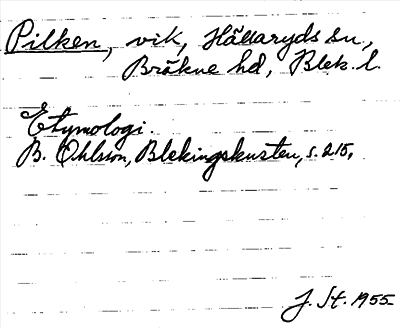 Pilken, vik, Hällaryds sn,
Bräkne hd, Blek. l.
Etymologi.
B. Ohlsson, Blekingskusten, s. 215.
J. St. 1955